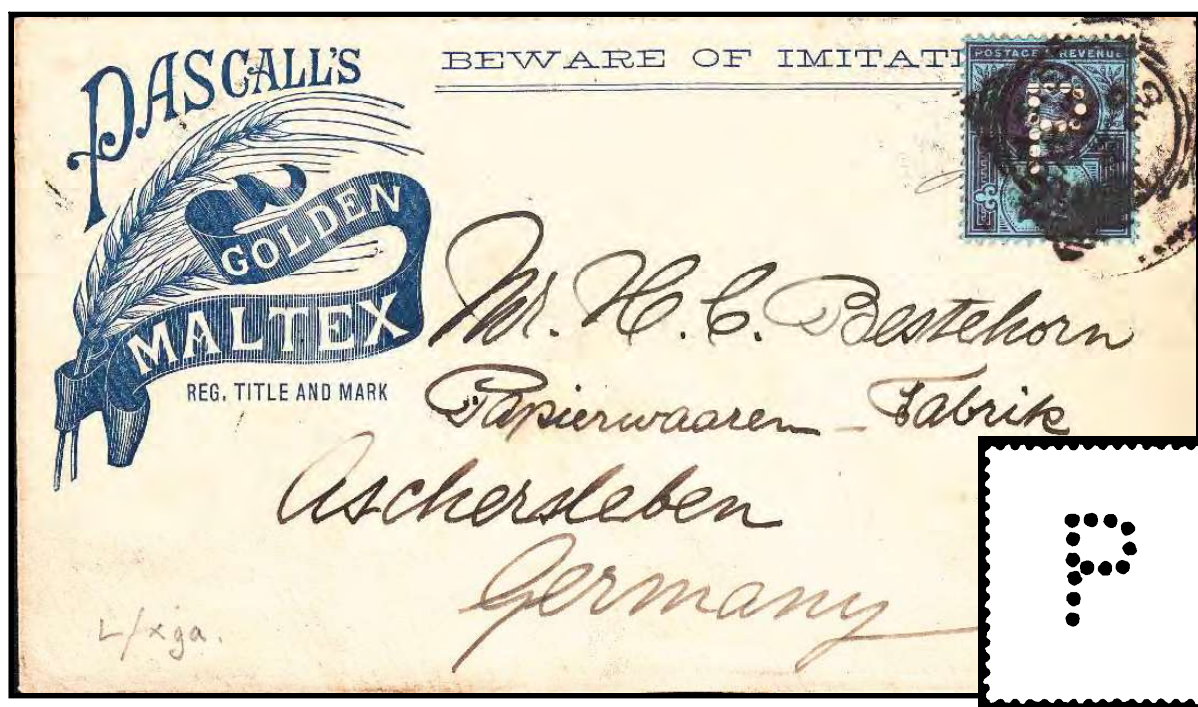 PASCALL'S
GOLDEN
MALTEX
REG. TITLE AND MARK
BEWARE OF IMITATI
POSTAGE & REVENUE
Mr. H. C. Bestehorn
Papierwaaren - Fabrik
Aschersleben
Germany
P
P